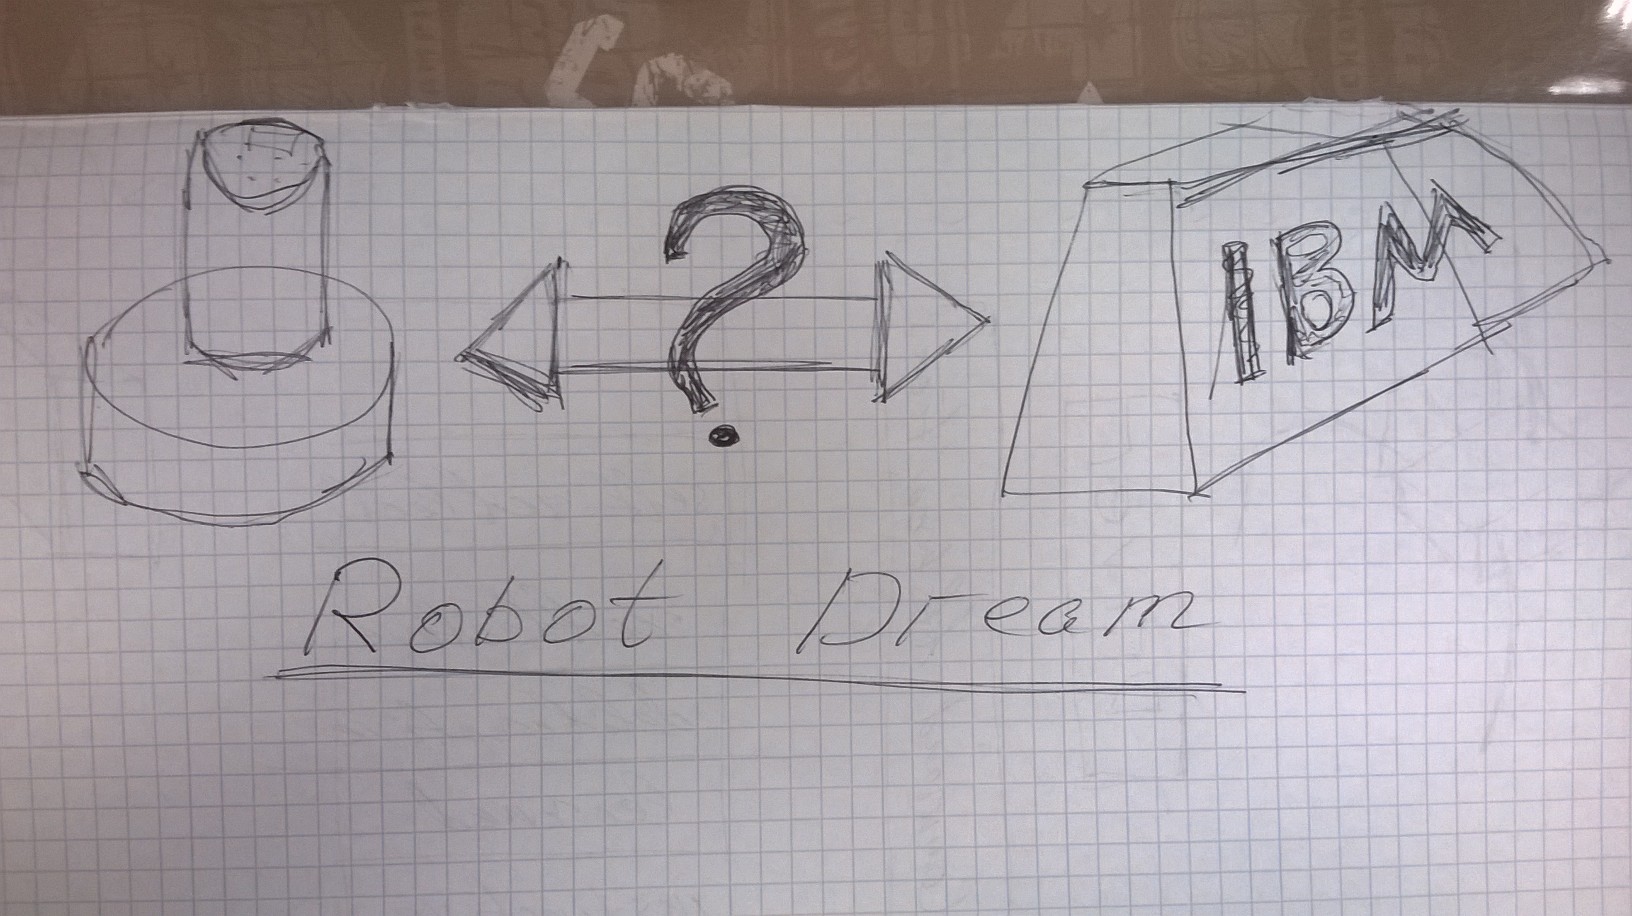 ?
IBM
Robot Dream